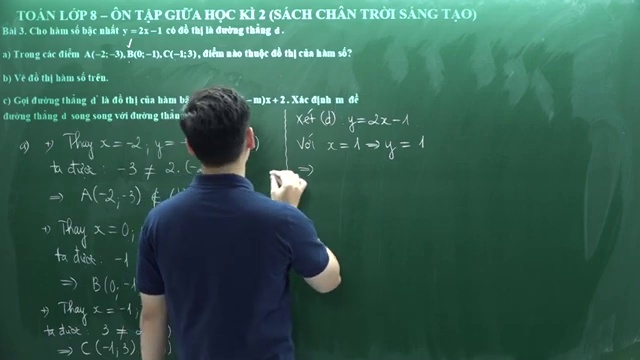 TOÁN LỚP 8 – ÔN TẬP GIỮA HỌC KÌ 2 (SÁCH CHÂN TRỜI SÁNG TẠO)
Bài 3. Cho hàm số bậc nhất y = 2x − 1 có đồ thị là đường thẳng d.
a) Trong các điểm A(−2; −3), B(0; −1), C(−1; 3), điểm nào thuộc đồ thị của hàm số?
b) Vẽ đồ thị hàm số trên.
c) Gọi đường thẳng d' là đồ thị của hàm −m)x + 2. Xác định m để
đường thẳng d song song với đường
a) +) Thay x = -2, y =
ta được: -3 ≠ 2.(-2
⇒ A(-2; -3) ∉ (
+) Thay x = 0,
ta được: -1
⇒ B(0, -1
+) Thay x = -1,
ta được: 3 ≠
⇒ C(-1, 3)
Xét (d) y = 2x - 1
Với x = 1 ⇒ y = 1
⇒